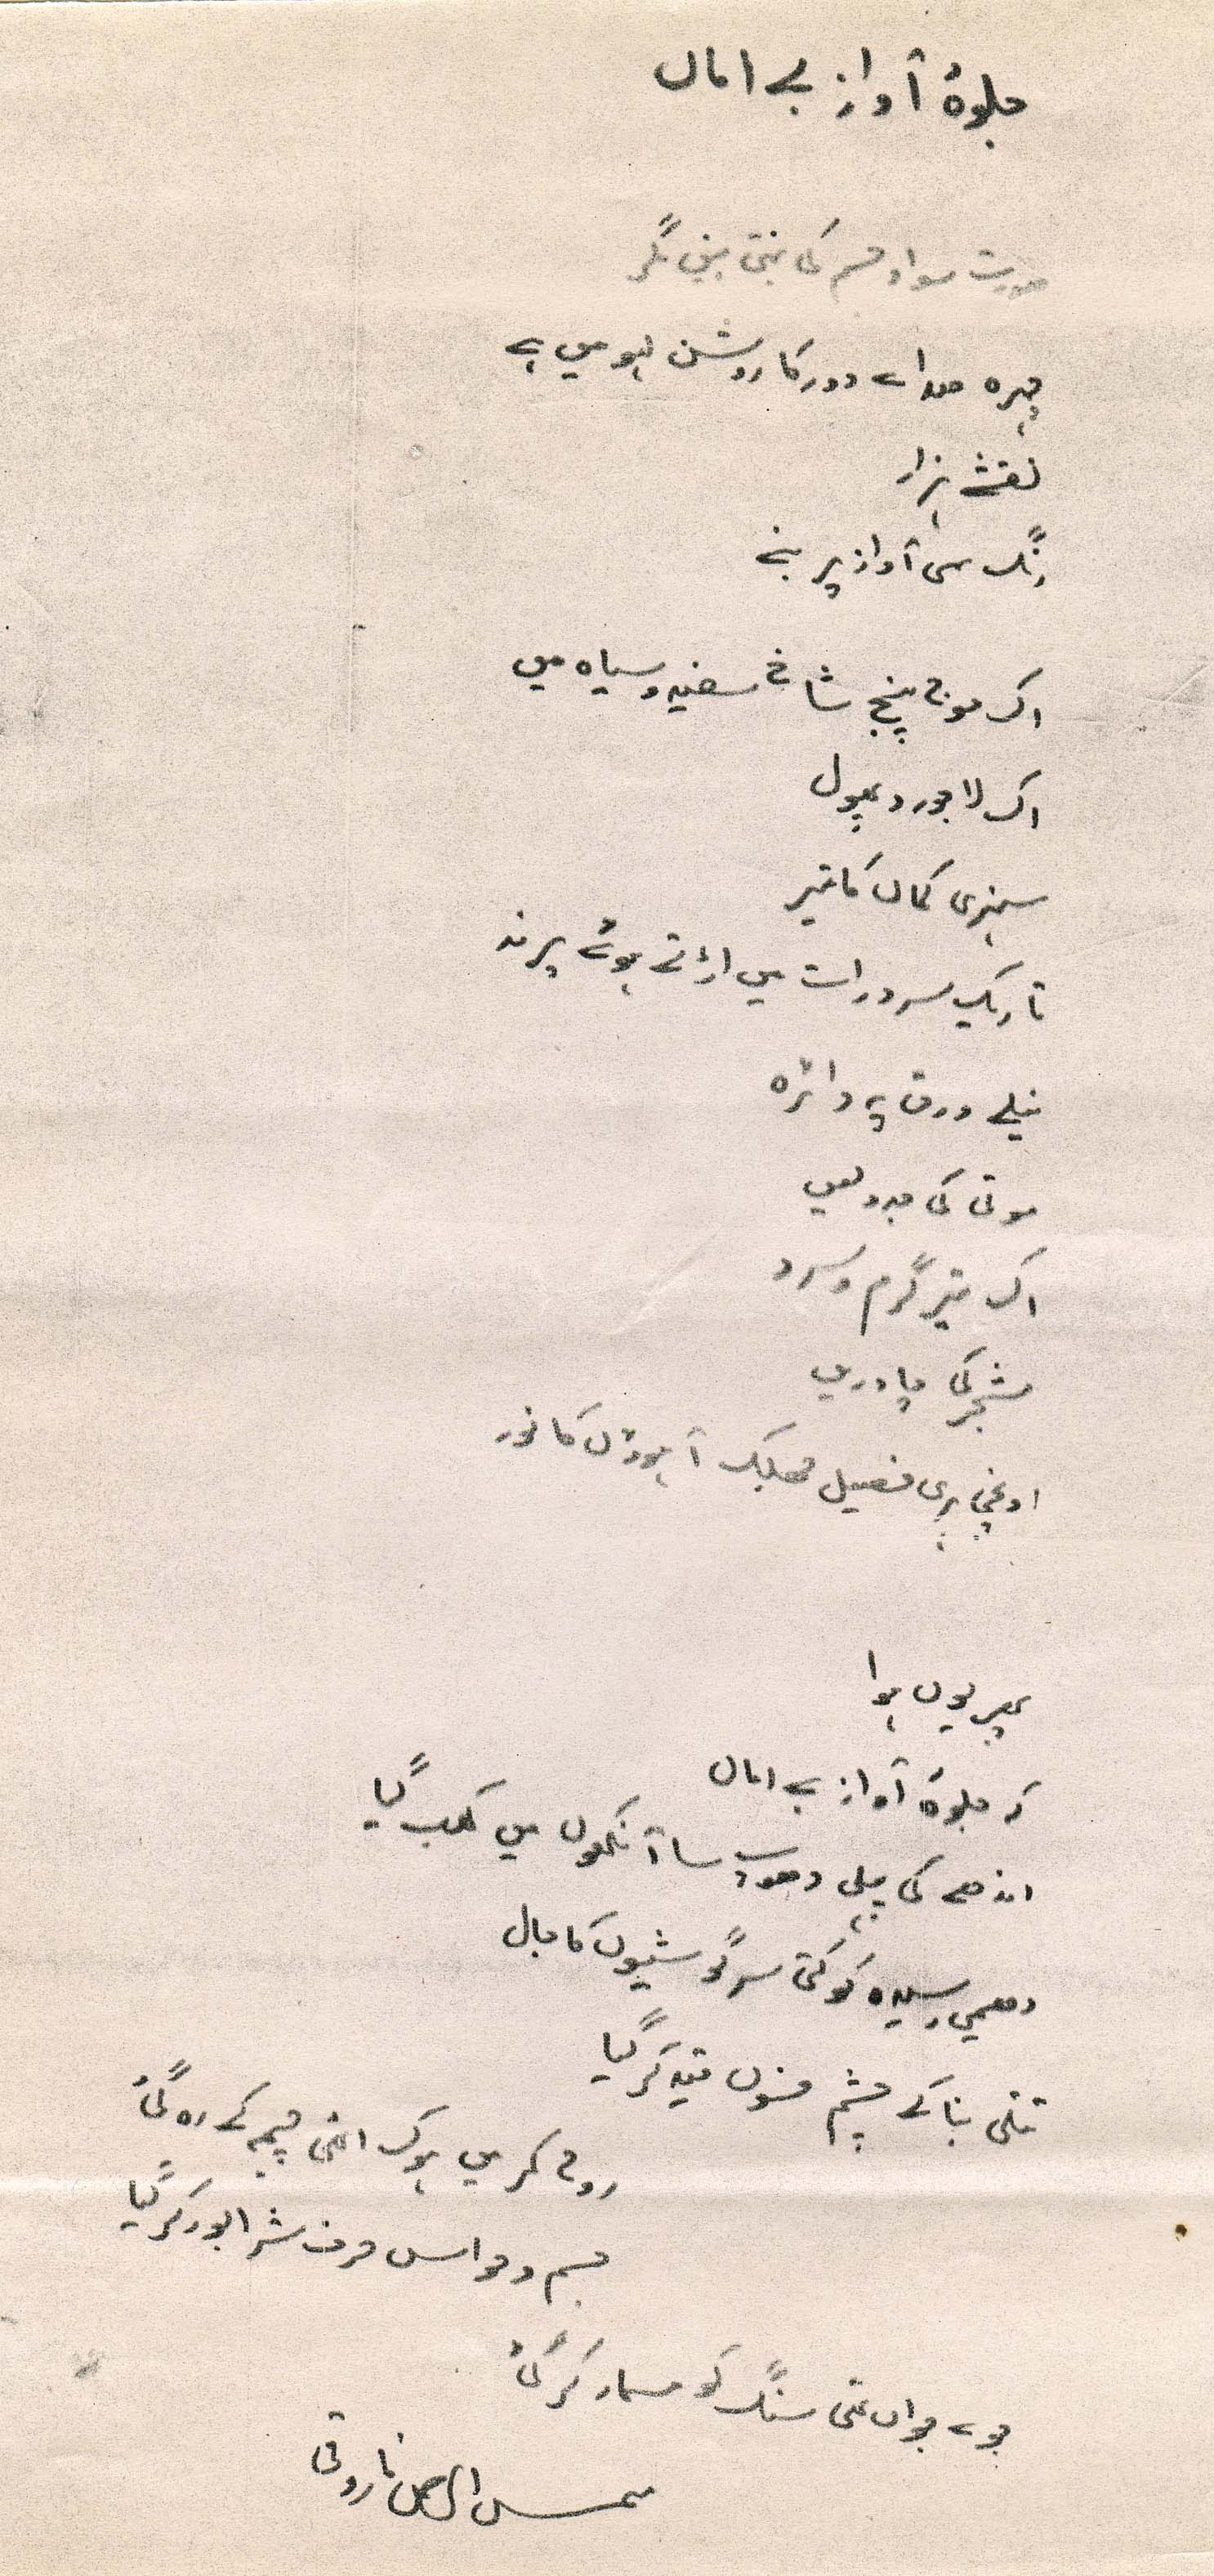 جلوۂ آواز بے اماں
صورت سواد جسم کی بنتی نہیں مگر
چہرہ صداے دور کا روشن لہو میں ہے
نقشے ہزار
رنگ سی آواز پر بنے
اک موج پنج شاخ سفید و سیاہ میں
اک لاجورد پھول
سنہری کماں کا تیر
تاریک سرد رات میں اڑتے ہوئے پرند
نیلے ورق پہ دائرہ
موتی کی جدولیں
اک تیر گرم و سرد
شجر کی چادریں
اونچی بری فصیل جھلک آہوؤں کا نور
پھر یوں ہوا
کہ جلوۂ آواز بے اماں
اندھے کی پیلی دھوپ سا آنکھوں میں کھب گیا
دھیمی رسیدہ کوکتی سرگوشیوں کا جال
تتلی بنا کے چشم فسوں قید کر گیا
روح کمر میں ہوک اٹھی چیخ کے رہ گئی
جسم و حواس حرف شرابور کر گیا
جوے جواں تھی سنگ کو مسمار کر گئی
شمس الرحمٰن فاروقی